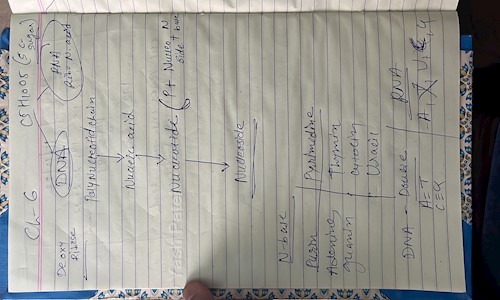 Ch-6
C5H10O5 (5 C sugar)
Deoxy ribose
DNA
RNA
Ribo N. acid
Polynucleotidchain
Nucleic acid
Nucleotide (P + Nucleo side + N base
Nucleoside
N-base
Purin | Pyrimidine
Adenine | Thymin
guanin | cytosin
Uracil
DNA - Double | RNA
A=T | A,
C≡G
Yash Patel